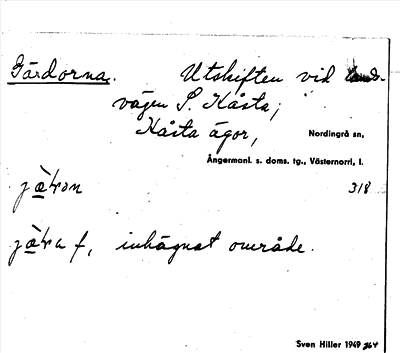 Gärdorna. Utskiften vid lands-
vägen S. Kåsta;
Kåsta ägor, Nordingrå sn,
Ångermanl. s. doms. tg., Västernorrl, l.
318
inhägnat område.
Sven Hiller 1949